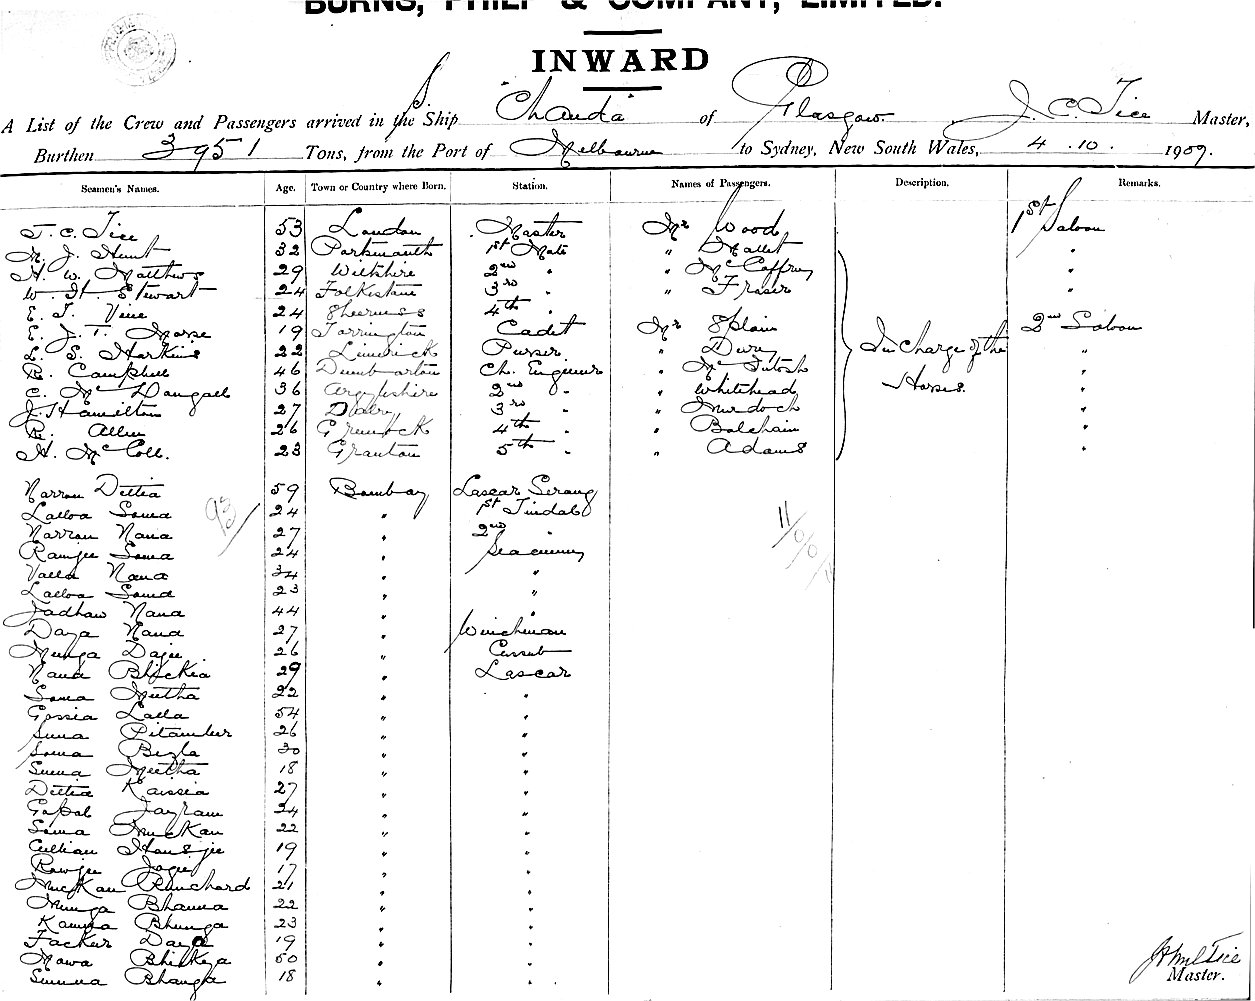 BURNS, PHILP & COMPANY, LIMITED.
INWARD
A List of the Crew and Passengers arrived in the S Ship "Chanda" of Glasgow. J. C. Tice Master,
Burthen 3951 Tons, from the Port of Melbourne to Sydney, New South Wales, 4.10. 1909.
Seamen's Names. Age. Town or Country where Born. Station. Names of Passengers. Description. Remarks.
J. C. Tice 53 London Master Mr Wood 1st Saloon
J. Hunt 32 Portsmouth 1st Mate " Mallet "
H. W. Matthews 29 Wiltshire 2nd " " McCaffrey "
W. St. Stewart 24 Folkstone 3rd " " Fraser "
E. J. Vine 24 Sheerness 4th "
E. J. T. Morse 19 Torrington Cadet Mr Splain 2nd Saloon
L. S. Harkins 22 Limerick Purser. " Dury In Charge of the "
R. Campbell 46 Dumbarton Ch. Engineer " McIntosh "
C. McDougall 36 Argyleshire 2nd " " Whitehead Horses. "
J. Hamilton 27 Dalry 3rd " " Murdoch "
R. Allen 26 Greenock 4th " " Balchain "
H. McColl. 23 Granton 5th " " Adams "
Narron Dettia 59 Bombay Lascar Serang
93
Lalloa Soma 24 " 1st Tindal
11/0/0/11
Narron Nana 27 " 2nd "
Ramjee Soma 24 " Seacunny
Valla Nana 34 " "
Lalloa Soma 23 " "
Jadhaw Nana 44 " "
Daya Nana 27 " Winchman
Munga Dajee 26 " Cassab
Nana Bhickia 29 " Lascar
Soma Meetha 22 " "
Gossia Lalla 54 " "
Suna Pitamber 26 " "
Soma Bezla 30 " "
Suma Meetha 18 " "
Dettia Kaissia 27 " "
Gopal Jayram 24 " "
Soma Muckan 22 " "
Cullian Hansjee 19 " "
Rowjee Jogee 17 " "
Muckan Ranchard 21 " "
Munga Bhanna 22 " "
Kanjia Bhunga 23 " "
Facker Daya 19 " "
Nawa Bhickya 50 " "
Summa Bhanga 18 " "
Tice
Master.